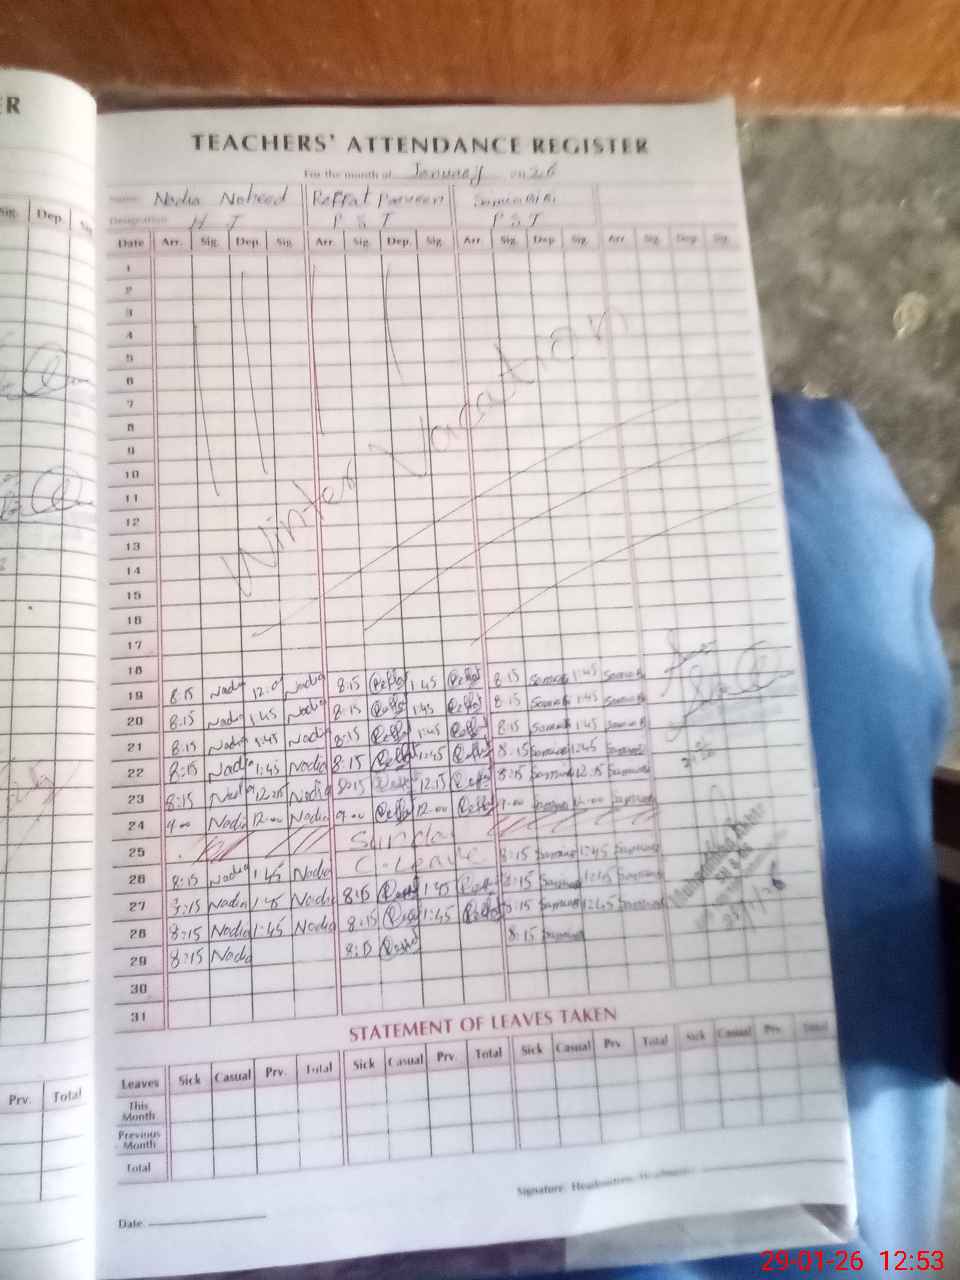 ER
TEACHERS' ATTENDANCE REGISTER
For the month of January 2026
Name Nadia Naheed Reffat Parveen Samina Bibi
Designation H T P S T P S T
Sig. Dep. Sig.
Date Arr. Sig. Dep. Sig. Arr. Sig. Dep. Sig. Arr Sig. Dep Sig. Arr Sig. Dep. Sig.
1
2
3
4
5
6
7
8
9
10
11
12
13
14
15
16
17
Winter Vacation
18
19 8:15 Nadia Nadia 8:15 Reffat 1:45 Reffat 8:15 1:45
20 8:15 Nadia 1:45 Nadia 8:15 Reffat 1:45 Reffat 8:15 1:45
21 8:15 Nadia 1:45 Nadia 8:15 Reffat 1:45 Reffat 8:15 1:45
22 8:15 Nadia 1:45 Nadia 8:15 Reffat 1:45 Reffat 8:15 1:45
23 8:15 Nadia 12:15 Nadia 8:15 Reffat 12:15 Reffat 8:15 12:15
24 9:00 Nadia 12:00 Nadia 9:00 Reffat 12:00 Reffat 9:00 12:00
25 Sunday
26 8:15 Nadia 1:45 Nadia C-Leave 8:15 1:45
27 8:15 Nadia 1:45 Nadia 8:15 Reffat 1:45 Reffat 8:15 1:45
28 8:15 Nadia 1:45 Nadia 8:15 Reffat 1:45 Reffat 8:15
29 8:15 Nadia 8:15 Reffat 8:15
30
31
STATEMENT OF LEAVES TAKEN
Prv. Total
Leaves Sick Casual Prv. Total Sick Casual Prv. Total Sick Casual Prv. Total Sick Casual Prv. Total
This Month
Previous Month
Total
Signature. Headmaster/Headmistress
Date
29-01-26 12:53